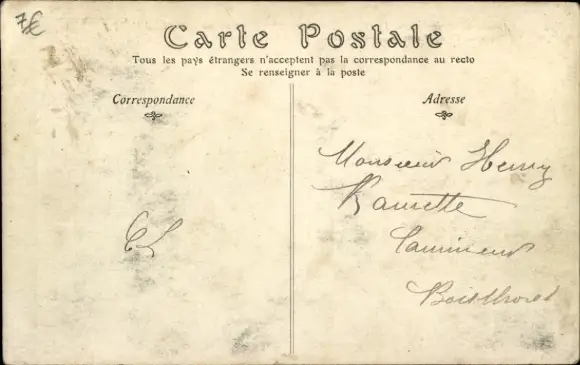 7€
Carte Postale
Tous les pays étrangers n'acceptent pas la correspondance au recto
Se renseigner à la poste
Correspondance
Adresse
Monsieur Henry
Ramette